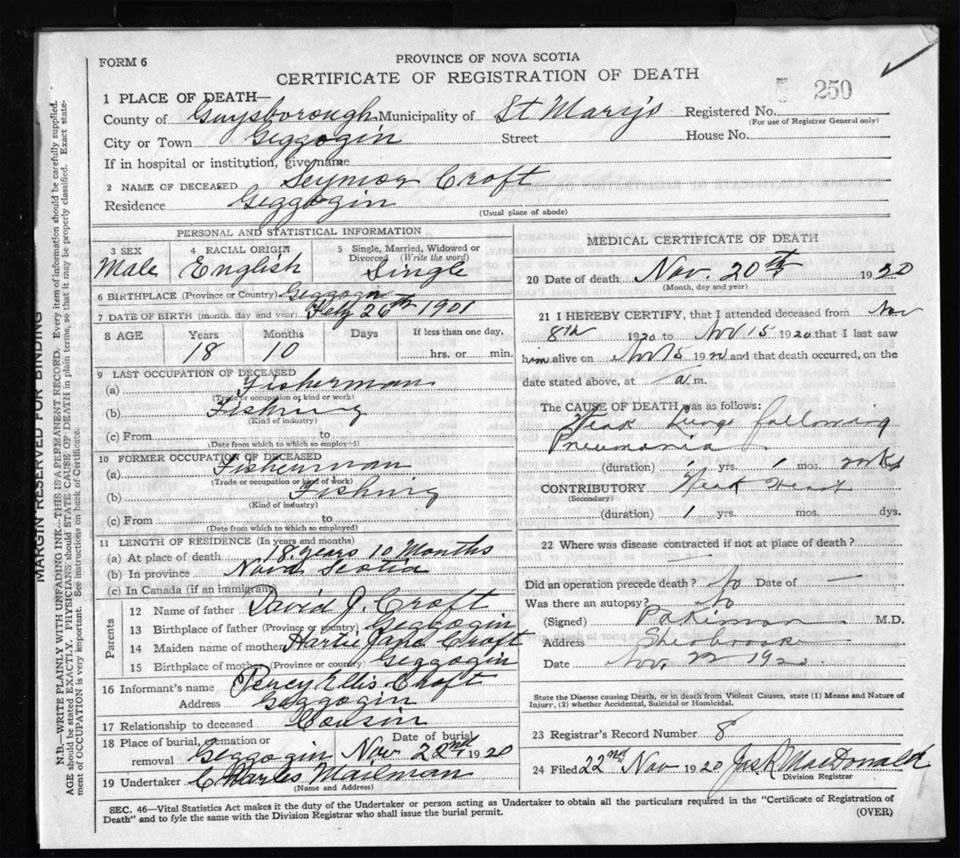 FORM 6
PROVINCE OF NOVA SCOTIA
CERTIFICATE OF REGISTRATION OF DEATH
250
1 PLACE OF DEATH—
County of Guysborough Municipality of St Mary's Registered No.
(For use of Registrar General only)
City or Town Geggogin Street House No.
If in hospital or institution, give name
2 NAME OF DECEASED Seymor Croft
Residence Geggogin
(Usual place of abode)
PERSONAL AND STATISTICAL INFORMATION
3 SEX Male
4 RACIAL ORIGIN English
5 Single, Married, Widowed or Divorced (Write the word) Single
6 BIRTHPLACE (Province or Country) Geggogin
7 DATE OF BIRTH (month, day and year) Feby 26th 1901
8 AGE Years Months Days If less than one day,
18 10 hrs. or min.
9 LAST OCCUPATION OF DECEASED
(a) Fisherman
(Trade or occupation or kind of work)
(b) Fishing
(Kind of industry)
(c) From to
(Date from which to which so employed)
10 FORMER OCCUPATION OF DECEASED
(a) Fisherman
(Trade or occupation or kind of work)
(b) Fishing
(Kind of industry)
(c) From to
(Date from which to which so employed)
11 LENGTH OF RESIDENCE (In years and months)
(a) At place of death 18 years 10 Months
(b) In province Nova Scotia
(c) In Canada (if an immigrant)
Parents
12 Name of father David J. Croft
13 Birthplace of father (Province or country) Geggogin
14 Maiden name of mother Jane Croft
15 Birthplace of mother (Province or country) Geggogin
16 Informant's name Percy Ellis Croft
Address Geggogin
17 Relationship to deceased Cousin
18 Place of burial, cremation or removal Geggogin Date of burial Nov 22nd 1920
19 Undertaker Charles Mailman
(Name and Address)
MEDICAL CERTIFICATE OF DEATH
20 Date of death Nov. 20th 1920
(Month, day and year)
21 I HEREBY CERTIFY, that I attended deceased from Nov
8th 1920 to Nov 15 1920 that I last saw
him alive on Nov 15 1920 and that death occurred, on the
date stated above, at m.
The CAUSE OF DEATH was as follows:
Weak lungs following
Pneumonia
(duration) 1 yrs. 1 mos.
CONTRIBUTORY Weak Heart
(Secondary)
(duration) 1 yrs. mos. dys.
22 Where was disease contracted if not at place of death?
Did an operation precede death? No Date of —
Was there an autopsy? No
(Signed) M.D.
Address Sherbrooke
Date Nov. 22 1920
State the Disease causing Death, or in death from Violent Causes, state (1) Means and Nature of
Injury, (2) whether Accidental, Suicidal or Homicidal.
23 Registrar's Record Number 8
24 Filed 22nd Nov 1920 MacDonald
Division Registrar
SEC. 46—Vital Statistics Act makes it the duty of the Undertaker or person acting as Undertaker to obtain all the particulars required in the "Certificate of Registration of
Death" and to fyle the same with the Division Registrar who shall issue the burial permit.
(OVER)
MARGIN RESERVED FOR BINDING
N.B.—WRITE PLAINLY WITH UNFADING INK—THIS IS A PERMANENT RECORD. Every item of information should be carefully supplied.
AGE should be stated EXACTLY. PHYSICIANS should STATE CAUSE OF DEATH in plain terms, so that it may be properly classified. Exact state-
ment of OCCUPATION is very important. See instructions on back of Certificate.